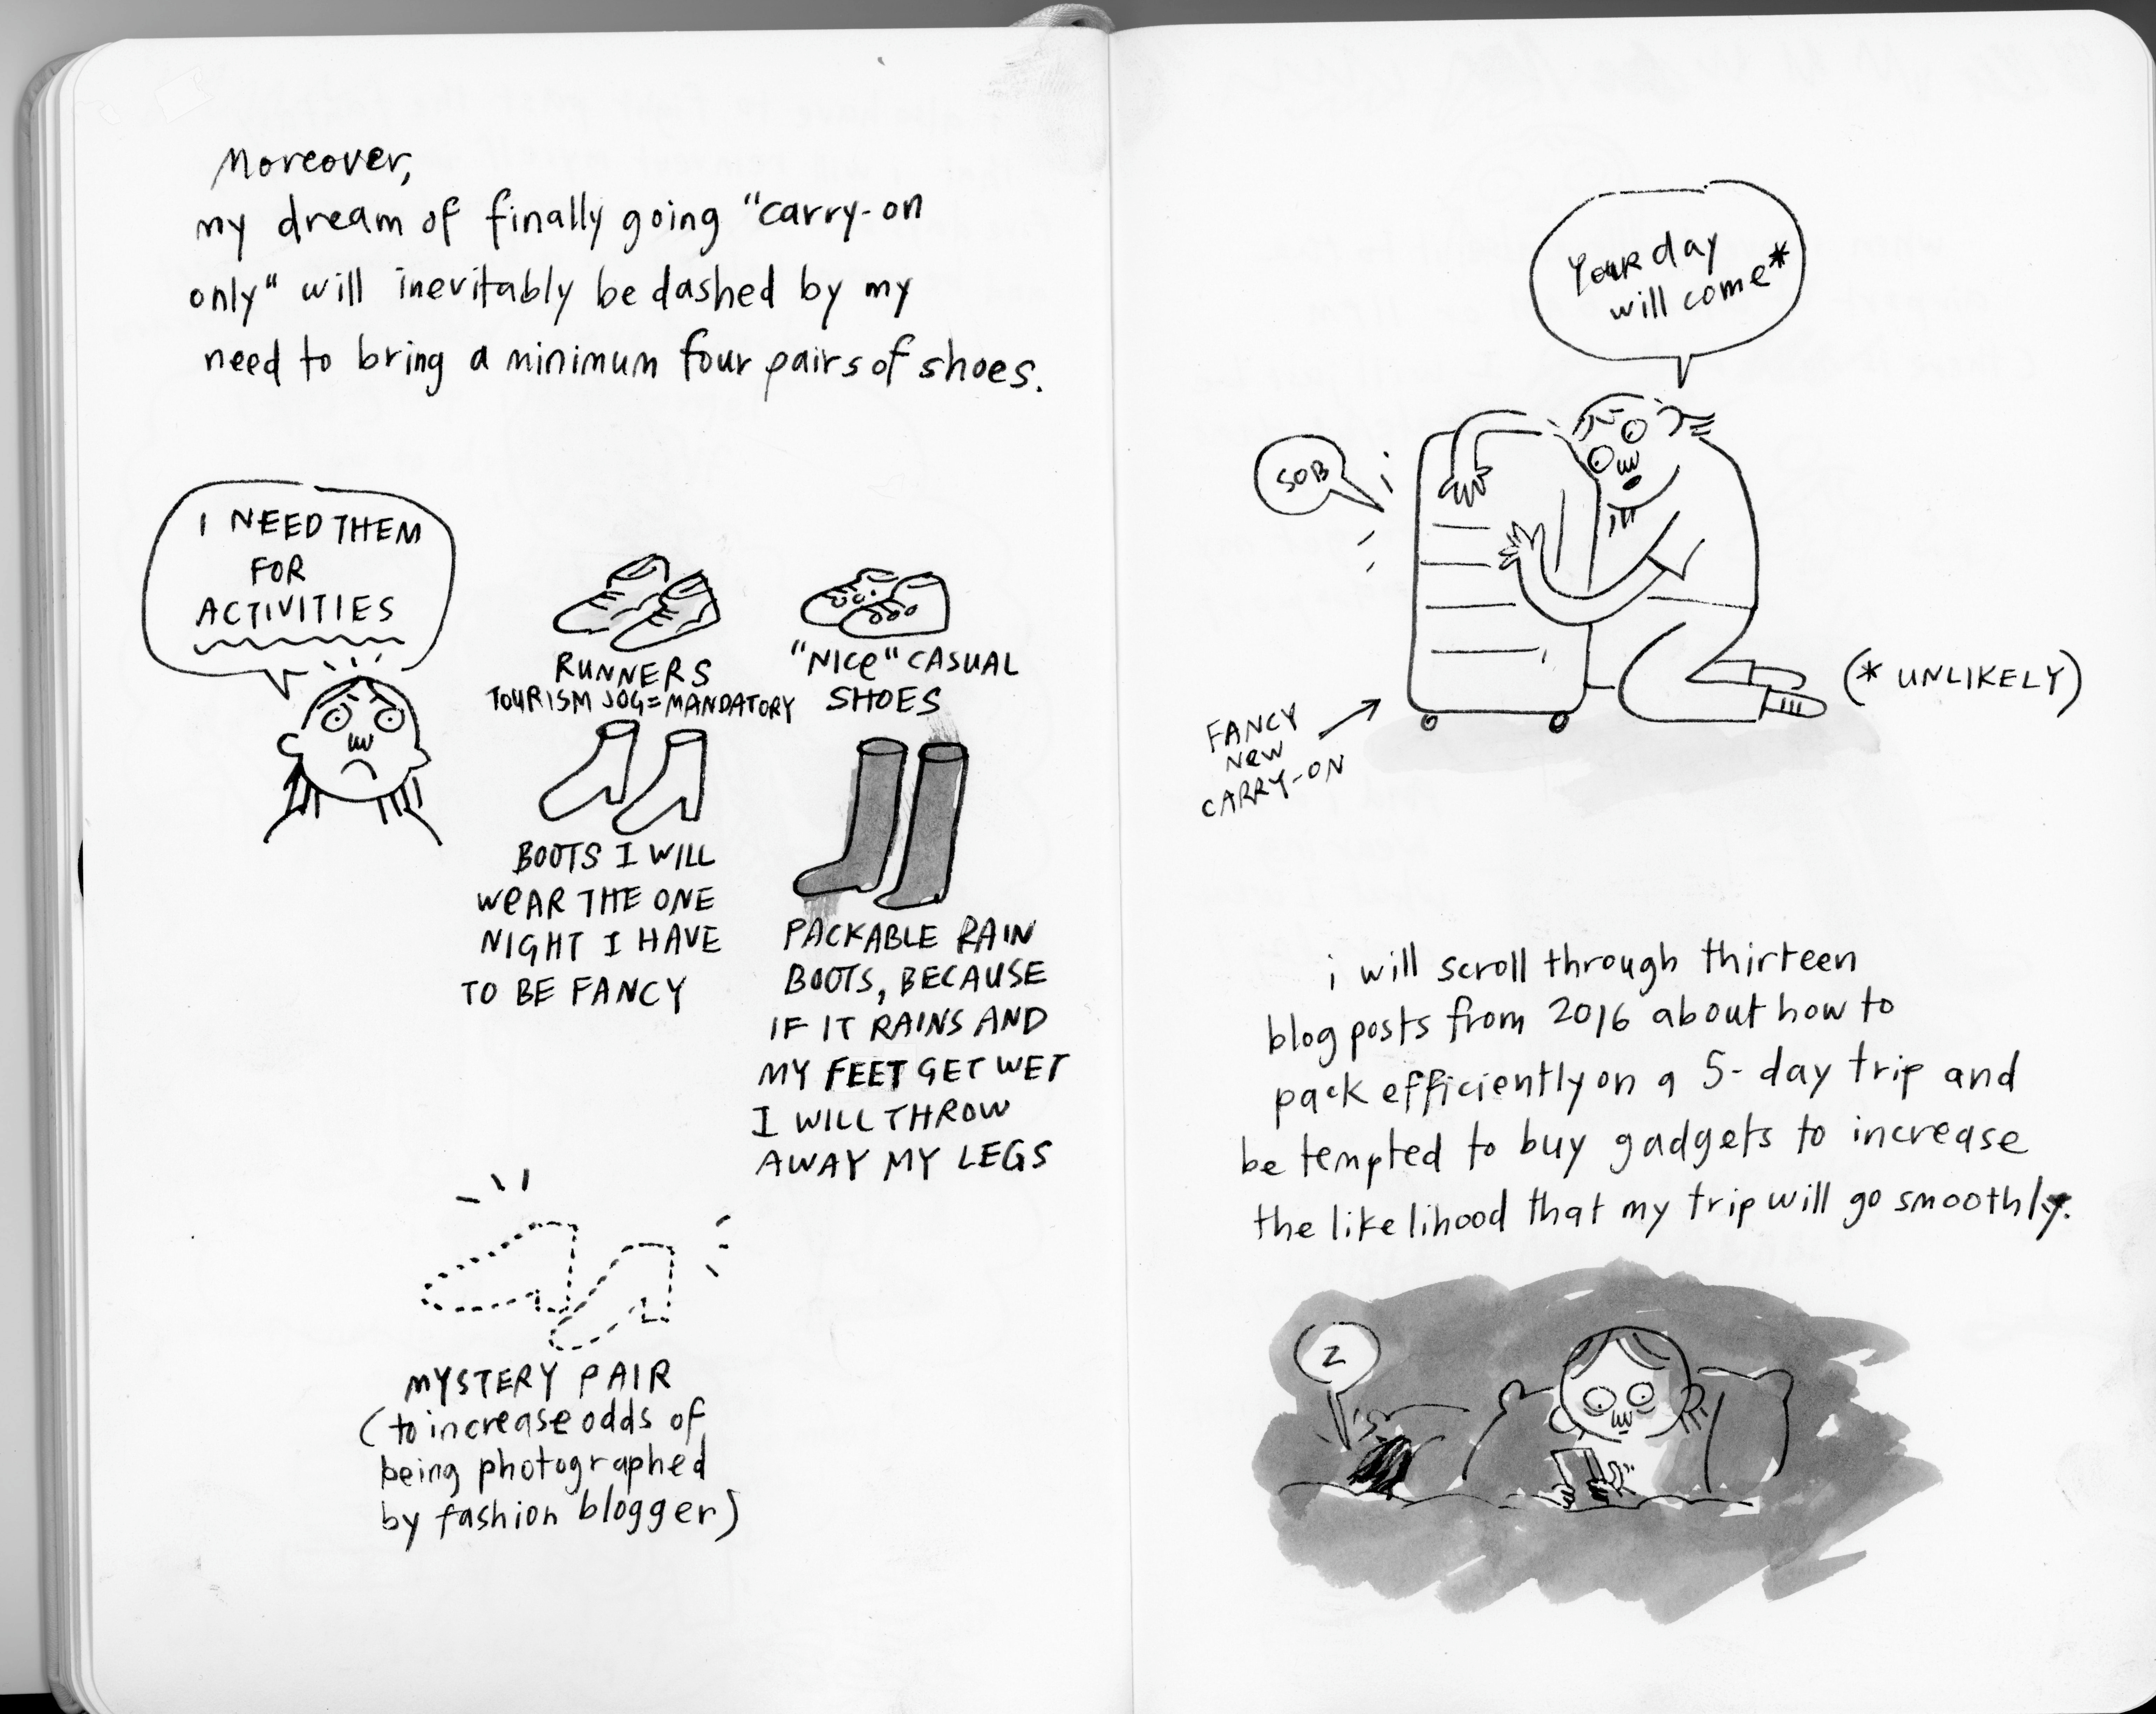 Moreover,
my dream of finally going "carry-on
only" will inevitably be dashed by my
need to bring a minimum four pairs of shoes.
I NEED THEM
FOR
ACTIVITIES
RUNNERS
TOURISM JOG = MANDATORY
"NICE" CASUAL
SHOES
BOOTS I WILL
WEAR THE ONE
NIGHT I HAVE
TO BE FANCY
PACKABLE RAIN
BOOTS, BECAUSE
IF IT RAINS AND
MY FEET GET WET
I WILL THROW
AWAY MY LEGS
MYSTERY PAIR
(to increase odds of
being photographed
by fashion blogger)
Your day
will come*
SOB
(* UNLIKELY)
FANCY
NEW
CARRY-ON
i will scroll through thirteen
blog posts from 2016 about how to
pack efficiently on a 5-day trip and
be tempted to buy gadgets to increase
the likelihood that my trip will go smoothly.
Z